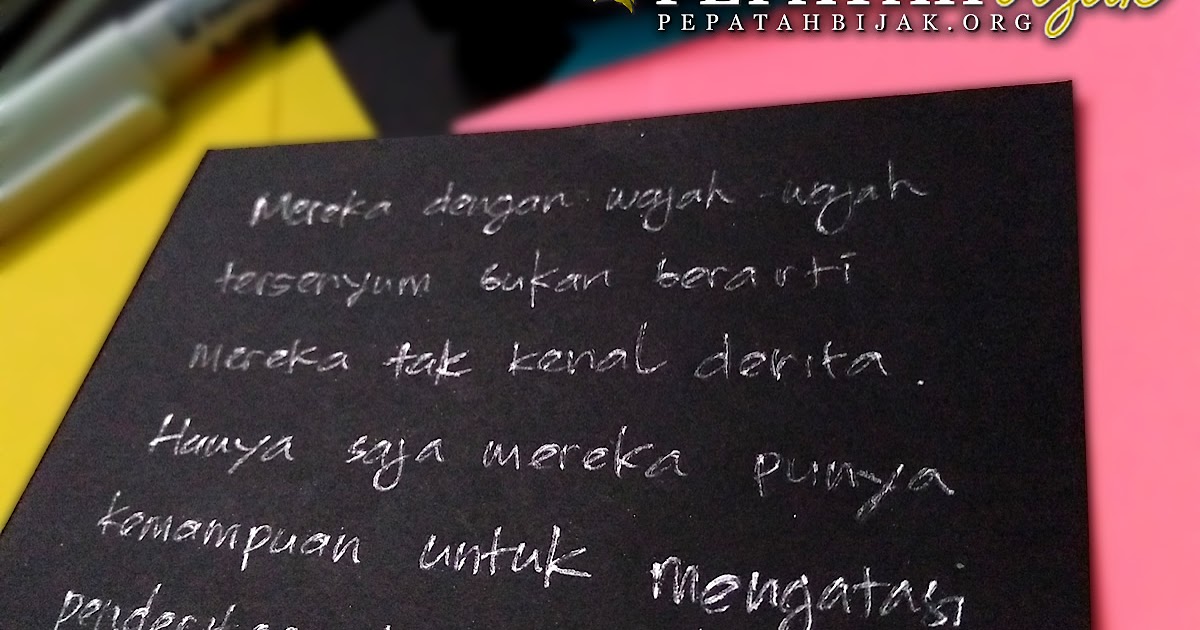 PEPATAHBIJAK.ORG
Mereka dengan wajah-wajah
tersenyum bukan berarti
Mereka tak kenal derita.
Hanya saja mereka punya
kemampuan untuk mengatasi